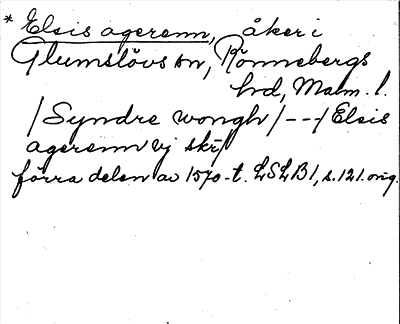 * Elsis agerenn, åker i
Glumslövs sn, Rönnebergs
hd, Malm. l.
/Syndre wongh/---/Elsis
agerenn vj skr/
förra delen av 1570-t. LSLB1, s. 121. orig.